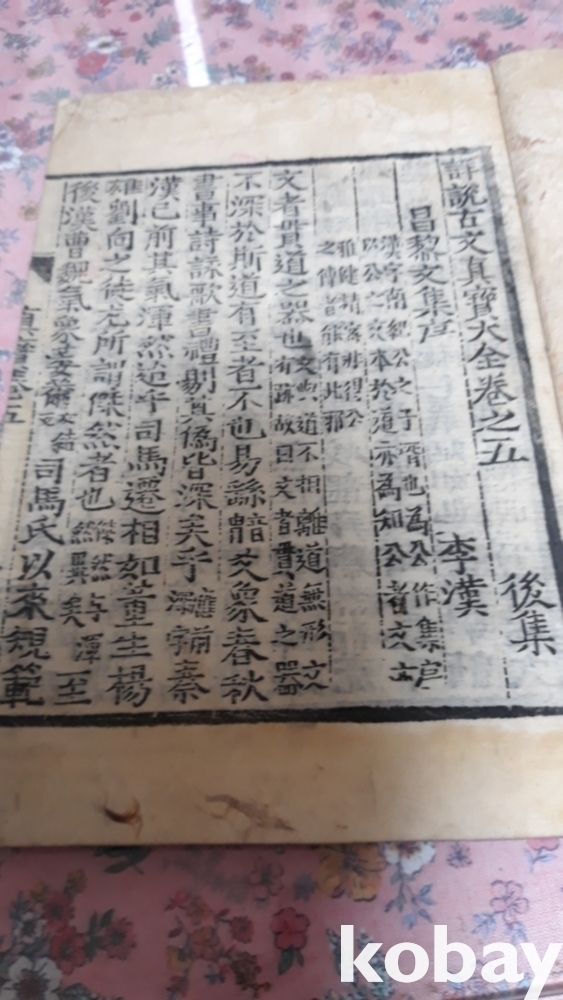 詳說古文眞寶大全卷之五
後集
昌黎文集序
李漢
漢字南紀公之子壻也爲公作集序
以公之文本於道亦爲知公者文亦
雅健精窮非得公
之傳者能有此耶
文者貫道之器也文與道不相離道無形文
有跡故曰文者貫道之器
不深於斯道有至者不也易繇爻象春秋
書事詩詠歌書禮剔其僞皆深矣乎秦
漢已前其氣渾然迨乎司馬遷相如董生楊
雄劉向之徒尤所謂傑然者也傑然與渾
然異矣至
後漢曹魏氣象萎薾司馬氏以來規範